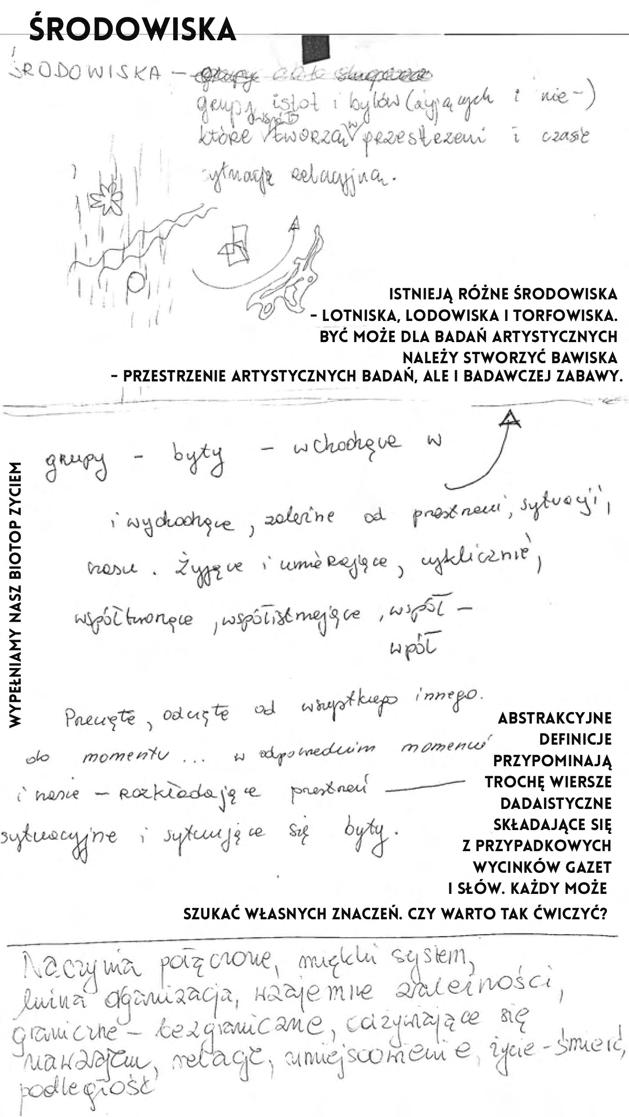 ŚRODOWISKA
ŚRODOWISKA –
grupy istot i bytów (żyjących i nie-)
które współtworzą w przestrzeni i czasie
sytuację relacyjną.
ISTNIEJĄ RÓŻNE ŚRODOWISKA
– LOTNISKA, LODOWISKA I TORFOWISKA.
BYĆ MOŻE DLA BADAŃ ARTYSTYCZNYCH
NALEŻY STWORZYĆ BAWISKA
– PRZESTRZENIE ARTYSTYCZNYCH BADAŃ, ALE I BADAWCZEJ ZABAWY.
WYPEŁNIAMY NASZ BIOTOP ŻYCIEM
grupy – byty – wchodzące w
i wychodzące, zależne od przestrzeni, sytuacji,
czasu. Żyjące i umierające, cyklicznie,
współtworzące, współistniejące, współ –
wpół
Przecięte, odcięte od wszystkiego innego.
do momentu... w odpowiednim momencie
i czasie – rozkładające przestrzeń
sytuacyjne i sytuujące się byty.
ABSTRAKCYJNE
DEFINICJE
PRZYPOMINAJĄ
TROCHĘ WIERSZE
DADAISTYCZNE
SKŁADAJĄCE SIĘ
Z PRZYPADKOWYCH
WYCINKÓW GAZET
I SŁÓW. KAŻDY MOŻE
SZUKAĆ WŁASNYCH ZNACZEŃ. CZY WARTO TAK ĆWICZYĆ?
Naczynia połączone, miękki system,
luźna oganizacja, wzajemne zależności,
graniczne – bezgraniczne, odżywiające się
nawzajem, relacje, umiejscowienie, życie – śmierć,
podległość